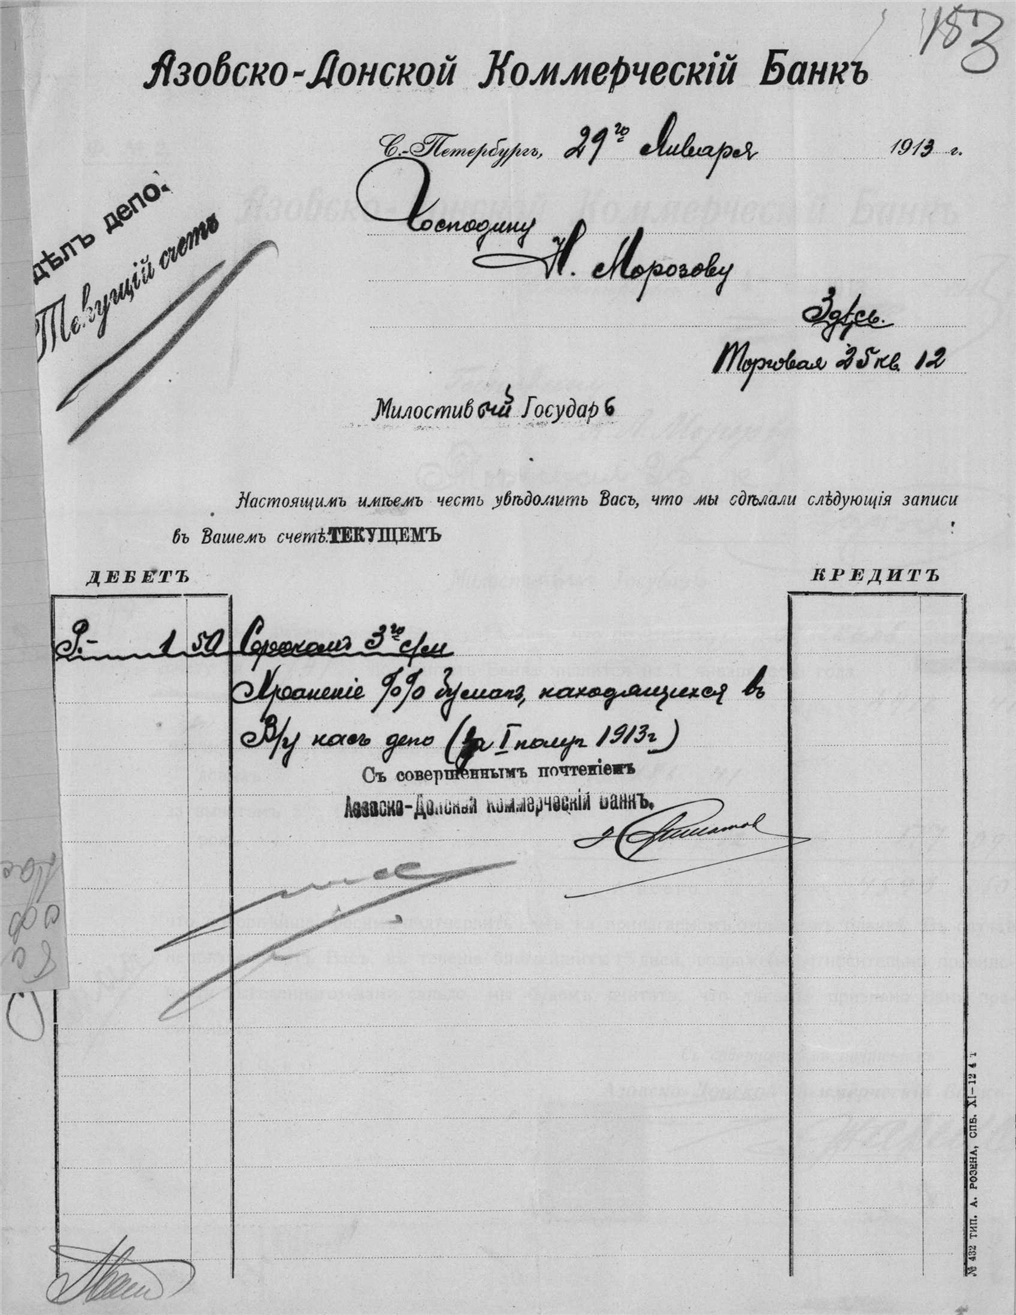 153
Азовско-Донской Коммерческій Банкъ
С.-Петербургъ, 29го Января 1913 г.
дѣлъ депо.
Текущій счетъ
Господину
Н. Морозову
Здѣсь.
Торговая 25 кв. 12
Милостивый Государь
Настоящимъ имѣемъ честь увѣдомить Васъ, что мы сдѣлали слѣдующія записи
въ Вашемъ счетѣ ТЕКУЩЕМЪ
ДЕБЕТЪ КРЕДИТЪ
Р. 1 50 Срокомъ 3го с/м
Храненіе %% бумагъ, находящихся въ
В/у насъ депо (за I полуг 1913 г)
Съ совершеннымъ почтеніемъ
Азовско-Донской Коммерческій Банкъ.
№ 432 ТИП. А. РОЗЕНА, СПБ. XI-12 4 т